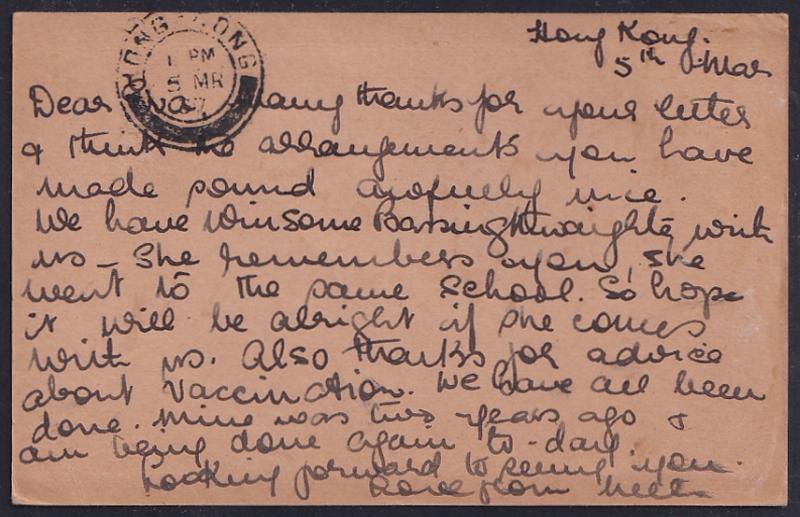 Hong Kong.
5th Mar
HONG KONG
1 PM
5 MR
Dear many thanks for your letter
& think the arrangements you have
made sound awfully nice.
We have Winsome Bassingthwaighte with
us - She remembers you, she
went to the same School. So hope
it will be alright if she comes
with us. Also thanks for advice
about Vaccination. We have all been
done. Mine was two years ago &
am being done again to-day.
Looking forward to seeing you.
Love from